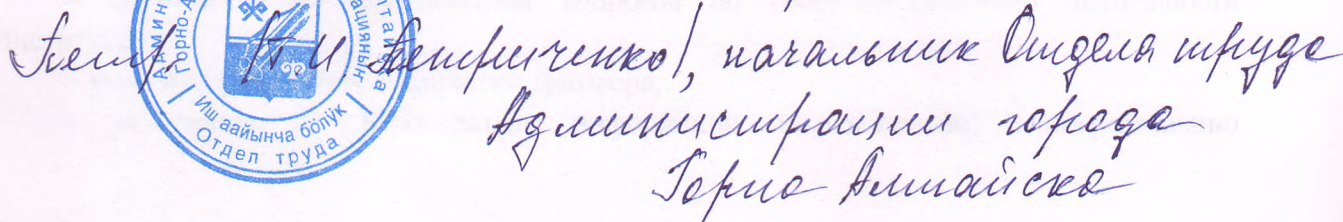 Петр. (Т.И. Петриченко), начальник Отдела труда
Администрации города
Горно Алтайска
Иш аайынча бӧлӱк
Отдел труда